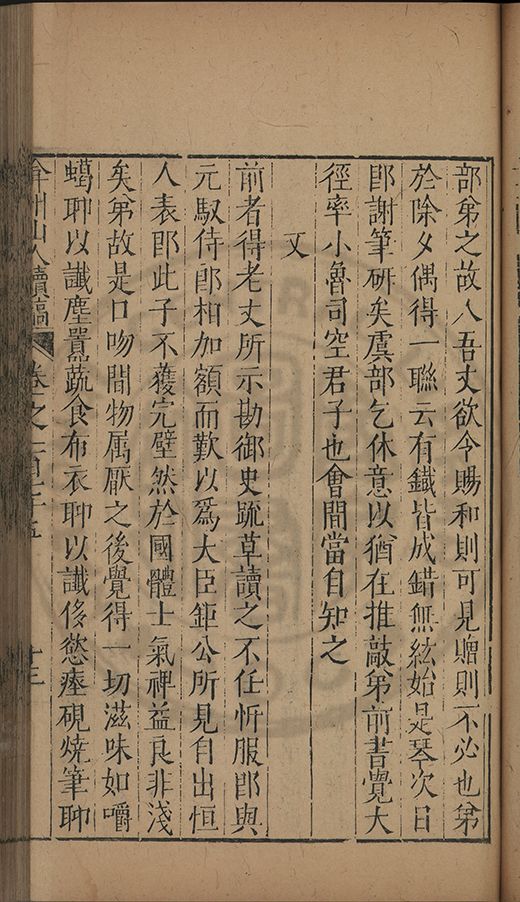 部弟之故人吾丈欲令賜和則可見贈則不必也弟
於除夕偶得一聯云有鐵皆成錯無絃始是琴次日
即謝筆研矣虞部乞休意以猶在推敲弟前書覺大
徑率小魯司空君子也會間當自知之
又
前者得老丈所示勘御史疏草讀之不任忻服即與
元馭侍郎相加額而歎以為大臣鉅公所見自出恒
人表即此子不獲完壁然於國體士氣裨益良非淺
矣弟故是口吻間物属厭之後覺得一切滋味如嚼
蠟聊以讖塵囂蔬食布衣聊以讖侈慾瘞硯焼筆聊
弇州山人續稿 卷之一百七十五 十三